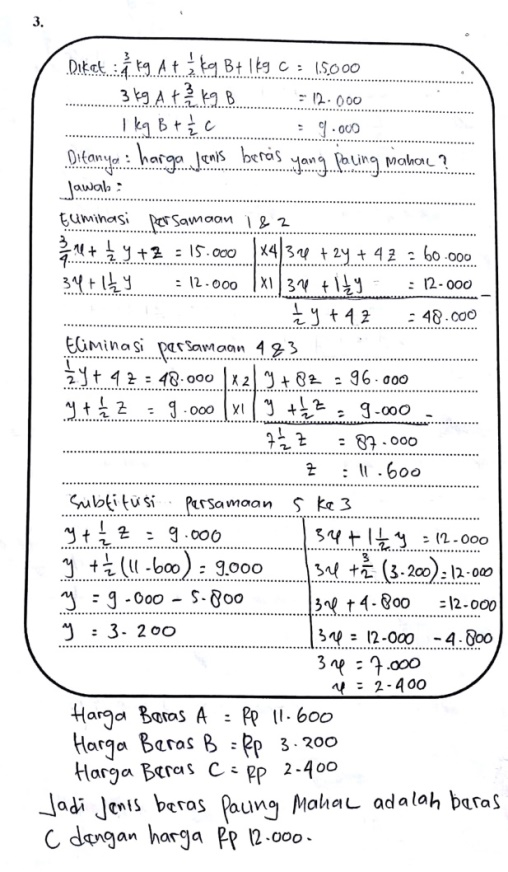 3.
Diket : 3/4 kg A + 1/2 kg B + 1 kg C = 15.000
3 kg A + 3/2 kg B = 12.000
1 kg B + 1/2 C = 9.000
Ditanya : harga jenis beras yang paling mahal ?
Jawab :
Eliminasi persamaan 1 & 2
3/4 x + 1/2 y + z = 15.000 | x4 | 3x + 2y + 4z = 60.000
3x + 1 1/2 y = 12.000 | x1 | 3x + 1 1/2 y = 12.000 -
1/2 y + 4z = 48.000
Eliminasi persamaan 4 & 3
1/2 y + 4z = 48.000 | x2 | y + 8z = 96.000
y + 1/2 z = 9.000 | x1 | y + 1/2 z = 9.000 -
7 1/2 z = 87.000
z = 11.600
Subtitusi persamaan 5 ke 3
y + 1/2 z = 9.000 | 3x + 1 1/2 y = 12.000
y + 1/2 (11.600) = 9.000 | 3x + 3/2 (3.200) = 12.000
y = 9.000 - 5.800 | 3x + 4.800 = 12.000
y = 3.200 | 3x = 12.000 - 4.800
3x = 7.000
x = 2.400
Harga Beras A = Rp 11.600
Harga Beras B = Rp 3.200
Harga Beras C = Rp 2.400
Jadi jenis beras paling mahal adalah beras
C dengan harga Rp 12.000.